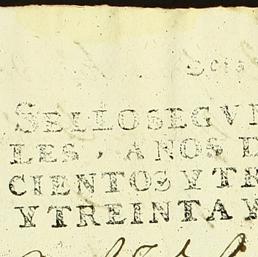 Seis
SELLO SEGVN
LES, AÑOS D
CIENTOS Y TR
Y TREINTA Y